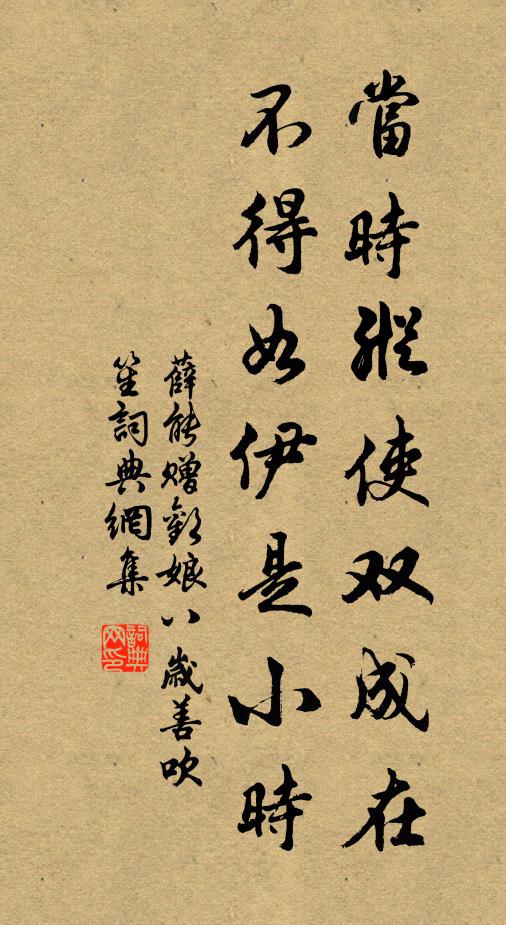 當時縱使双成在
不得如伊是小時
薛能贈歡娘八歲善吹
笙詞典網集
詞典
网印